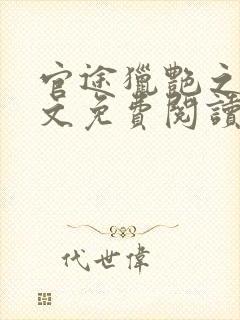 官途獵艷之
文免費閱讀
代世偉